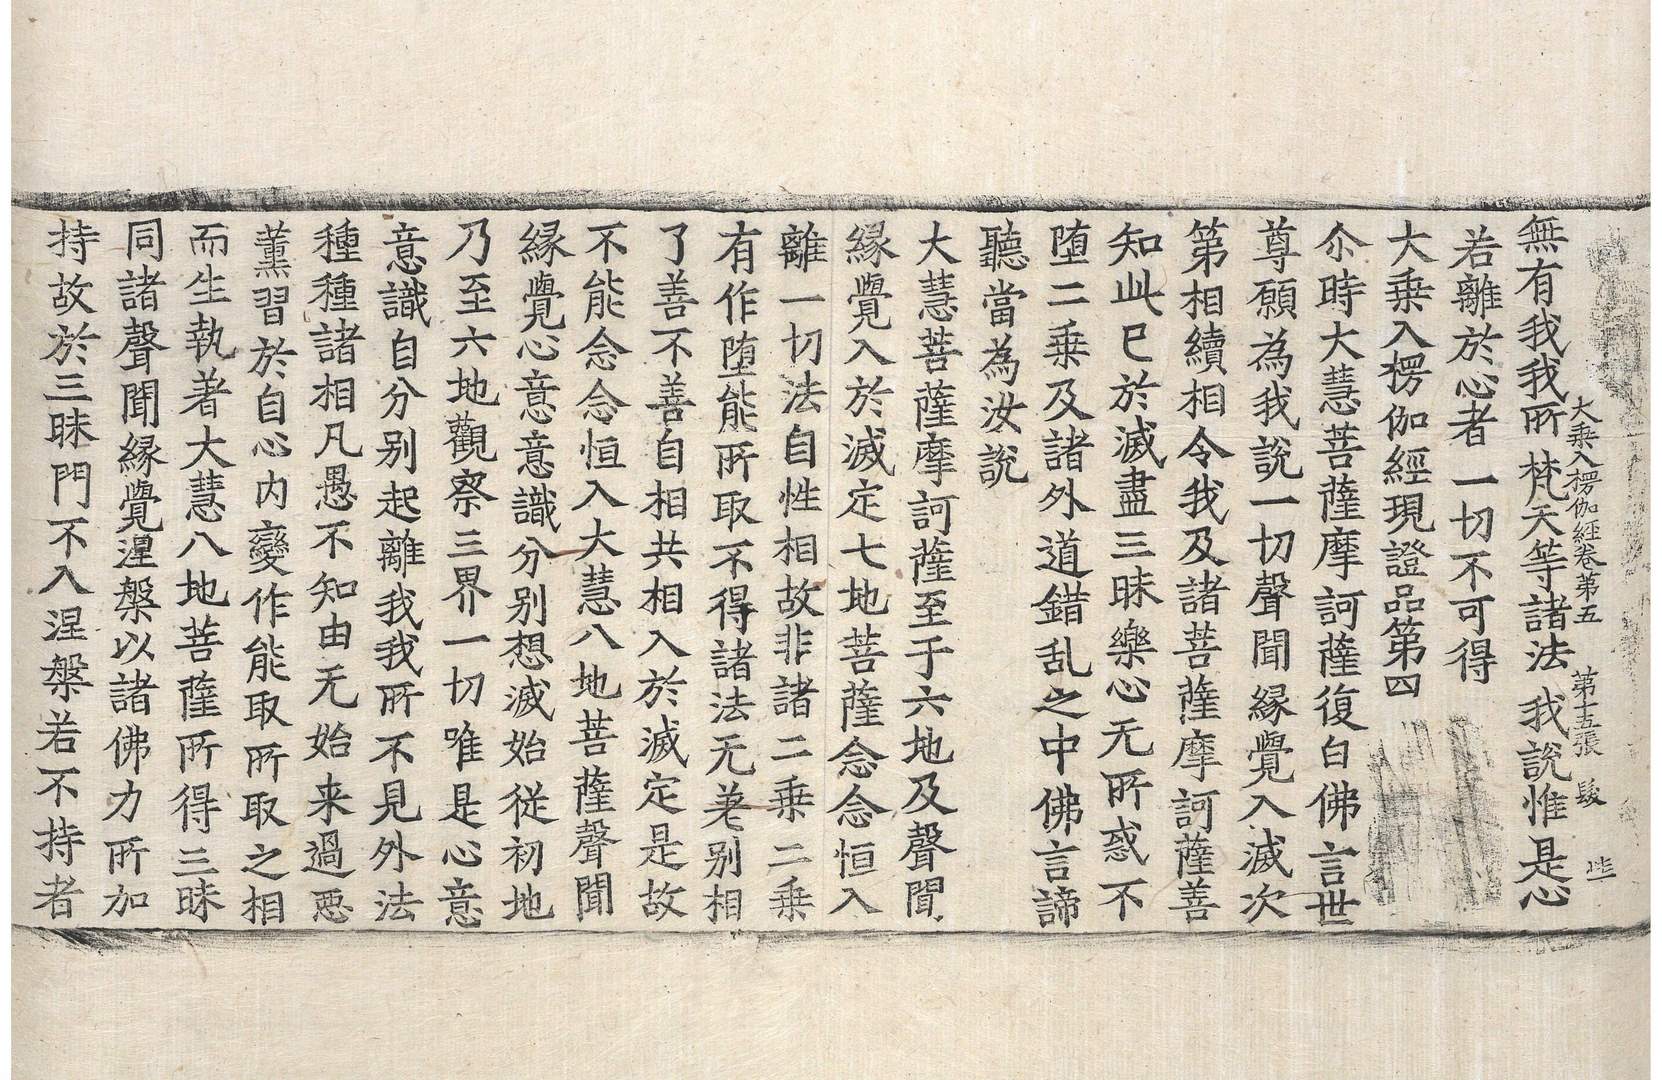 大乗入楞伽經卷第五　第十五張　髮
無有我我所　梵天等諸法　我說惟是心
若離於心者　一切不可得
大乗入楞伽經現證品第四
尒時大慧菩薩摩訶薩復白佛言世
尊願為我説一切聲聞縁覺入滅次
第相續相令我及諸菩薩摩訶薩善
知此已於滅盡三昧樂心无所惑不
堕二乗及諸外道錯乱之中佛言諦
聽當為汝說
大慧菩薩摩訶薩至于六地及聲聞
縁覺入於滅定七地菩薩念念恒入
離一切法自性相故非諸二乗二乗
有作堕能所取不得諸法无差別相
了善不善自相共相入於滅定是故
不能念念恒入大慧八地菩薩聲聞
縁覺心意意識分別想滅始從初地
乃至六地觀察三界一切唯是心意
意識自分別起離我我所不見外法
種種諸相凡愚不知由无始来過惡
薫習於自心內變作能取所取之相
而生執著大慧八地菩薩所得三昧
同諸聲聞縁覺涅槃以諸佛力所加
持故於三昧門不入涅槃若不持者